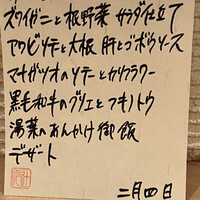 ズワイガニと根野菜 サラダ仕立て
アワビソテーと大根 肝とゴボウソース
マナガツオのソテーとカリフラワー
黒毛和牛のグリエとフキノトウ
湯葉のあんかけ御飯
デザート
二月四日